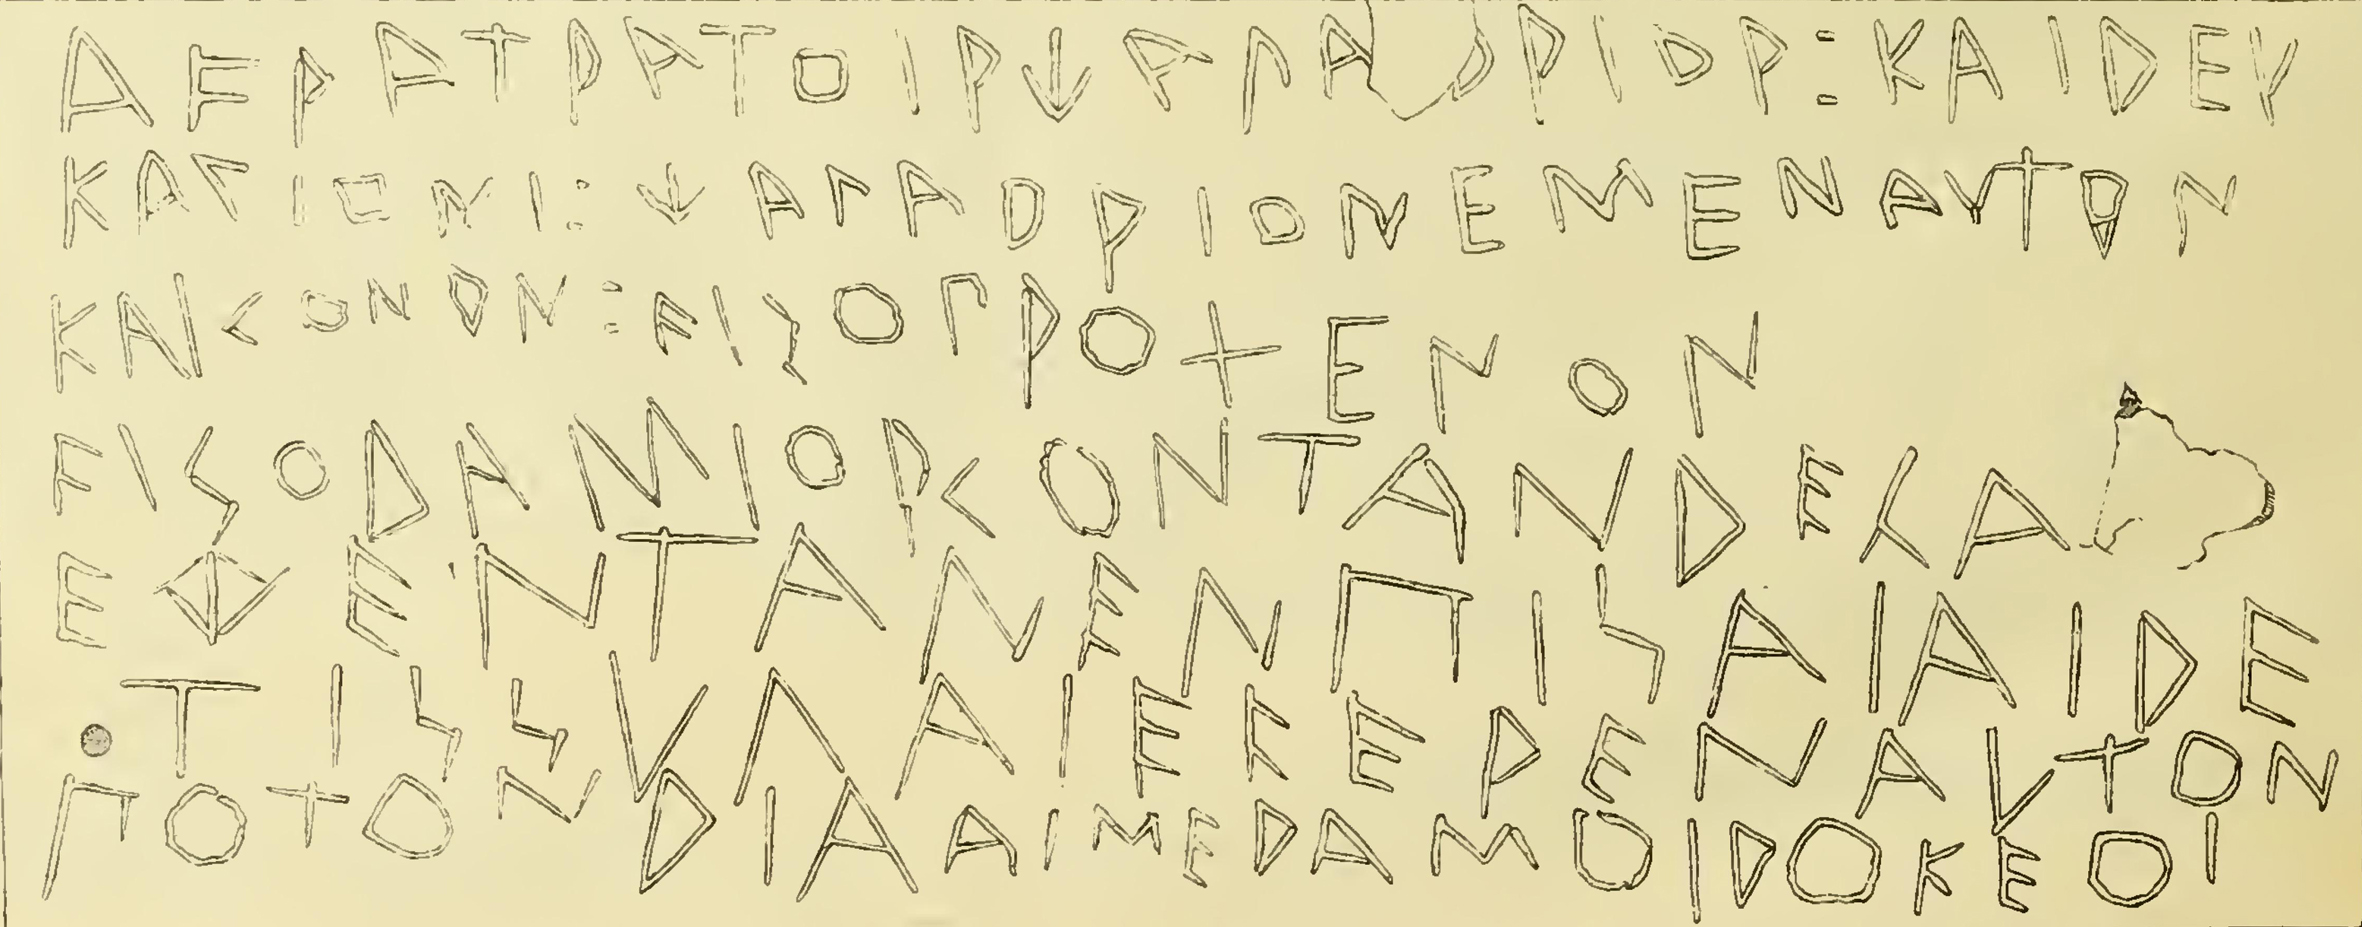 ΑϜΡΑΤΡΑΤΟΙΡΧΑΛΑΔΡΙΟΡ:ΚΑΙΔΕΥ
ΚΑΛΙΟΝΙ:ΧΑΛΑΔΡΙΟΝΕΜΕΝΑΥΤΟΝ
ΚΑΙΓΟΝΟΝ:ϜΙΣΟΠΡΟΞΕΝΟΝ
ϜΙΣΟΔΑΜΙΟΡΓΟΝΤΑΝΔΕΓΑ
ΕΧΕΝΤΑΝΕΝΠΙΣΑΙΑΙΔΕ
ΤΙΣΣΥΛΑΙΕϜΕΡΕΝΑΥΤΟΝ
ΠΟΤΟΝΔΙΑΑΙΜΕΔΑΜΟΙΔΟΚΕΟΙ